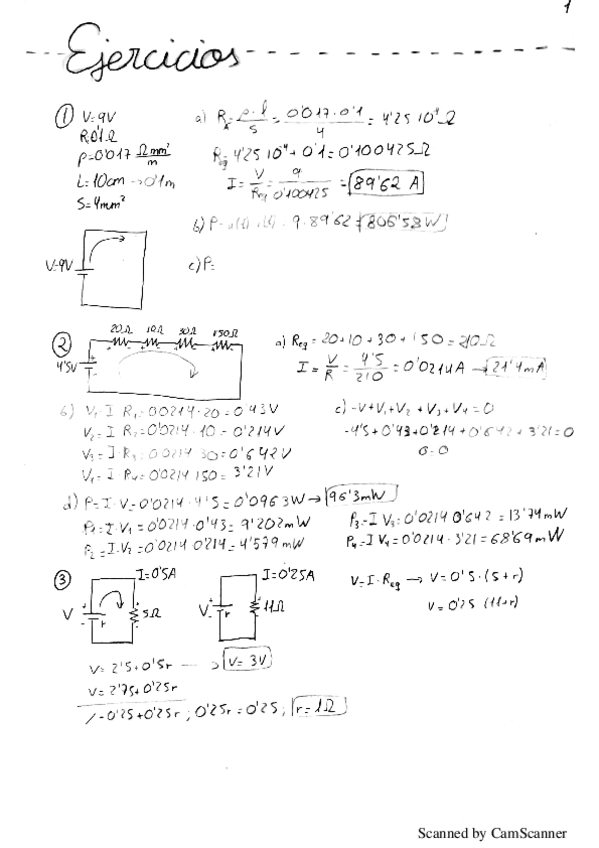 1
Ejercicios
① V=9V
R 0'1Ω
ρ=0'017 Ω mm²/m
L=10cm → 0'1m
S=4mm²
a) R = ρ·l/S = 0'017·0'1/4 = 4'25 10⁻⁴Ω
Req 4'25 10⁻⁴ + 0'1 = 0'100425Ω
I = V/Req = 9/0'100425 = 89'62 A
b) P = 9·89'62 = 806'58W
V=9V
c) P=
②
20Ω 10Ω 30Ω 150Ω
4'5V
a) Req = 20+10+30+150 = 210Ω
I = V/R = 4'5/210 = 0'0214A → 21'4mA
b) V₁=I·R₁=0'0214·20=0'43V
V₂=I·R₂=0'0214·10=0'214V
V₃=I·R₃=0'0214·30=0'642V
V₄=I·R₄=0'0214·150=3'21V
c) -V+V₁+V₂+V₃+V₄=0
-4'5+0'43+0'214+0'642+3'21=0
0=0
d) P=I·V=0'0214·4'5=0'0963W → 96'3mW
P₁=I·V₁=0'0214·0'43=9'202mW
P₂=I·V₂=0'0214·0'214=4'579mW
P₃=I·V₃=0'0214·0'642=13'74mW
P₄=I·V₄=0'0214·3'21=68'69mW
③
I=0'5A
V r 5Ω
I=0'25A
V r 11Ω
V=I·Req → V=0'5·(5+r)
V=0'25(11+r)
V=2'5+0'5r → V=3V
V=2'75+0'25r
/-0'25+0'25r; 0'25r=0'25; r=1Ω
Scanned by CamScanner